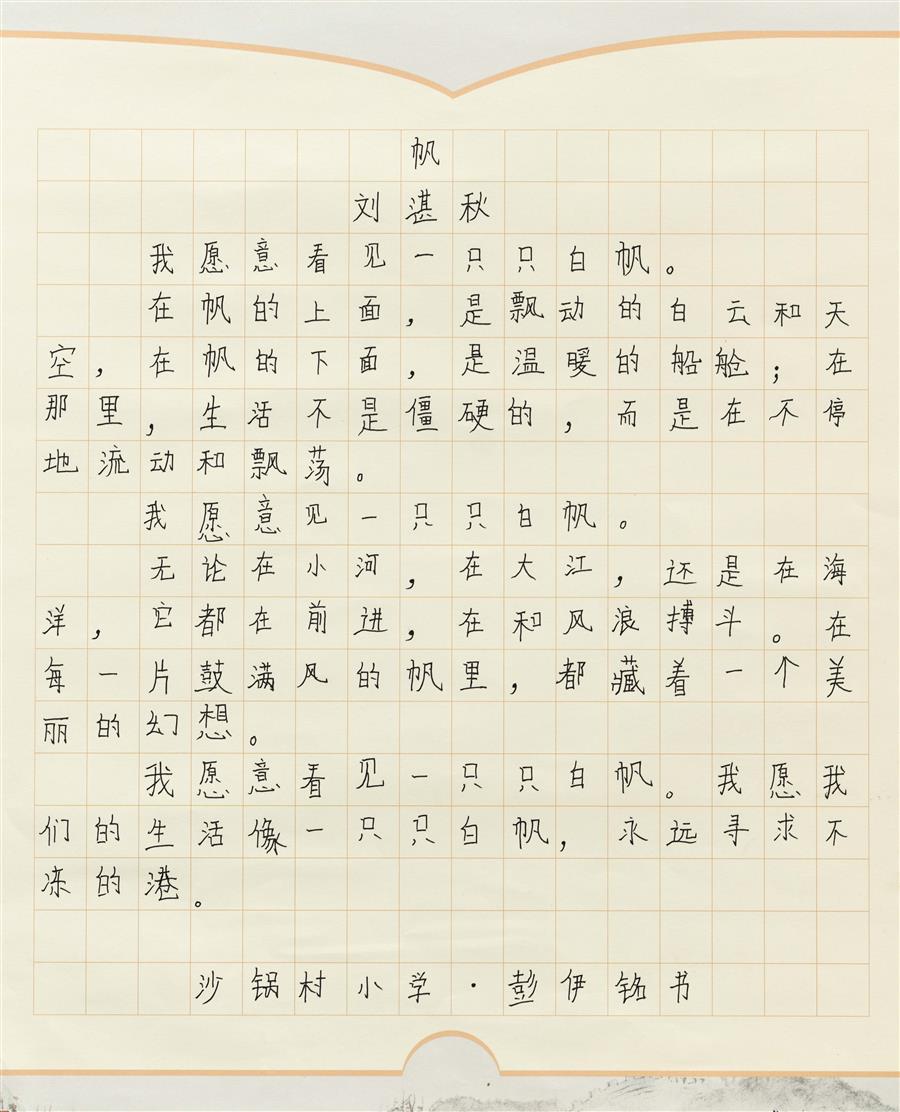 帆
刘湛秋
我愿意看见一只只白帆。
在帆的上面，是飘动的白云和天
空，在帆的下面，是温暖的船舱；在
那里，生活不是僵硬的，而是在不停
地流动和飘荡。
我愿意见一只只白帆。
无论在小河，在大江，还是在海
洋，它都在前进，在和风浪搏斗。在
每一片鼓满风的帆里，都藏着一个美
丽的幻想。
我愿意看见一只只白帆。我愿我
们的生活像一只只白帆，永远寻求不
冻的港。
沙锅村小学·彭伊铭书